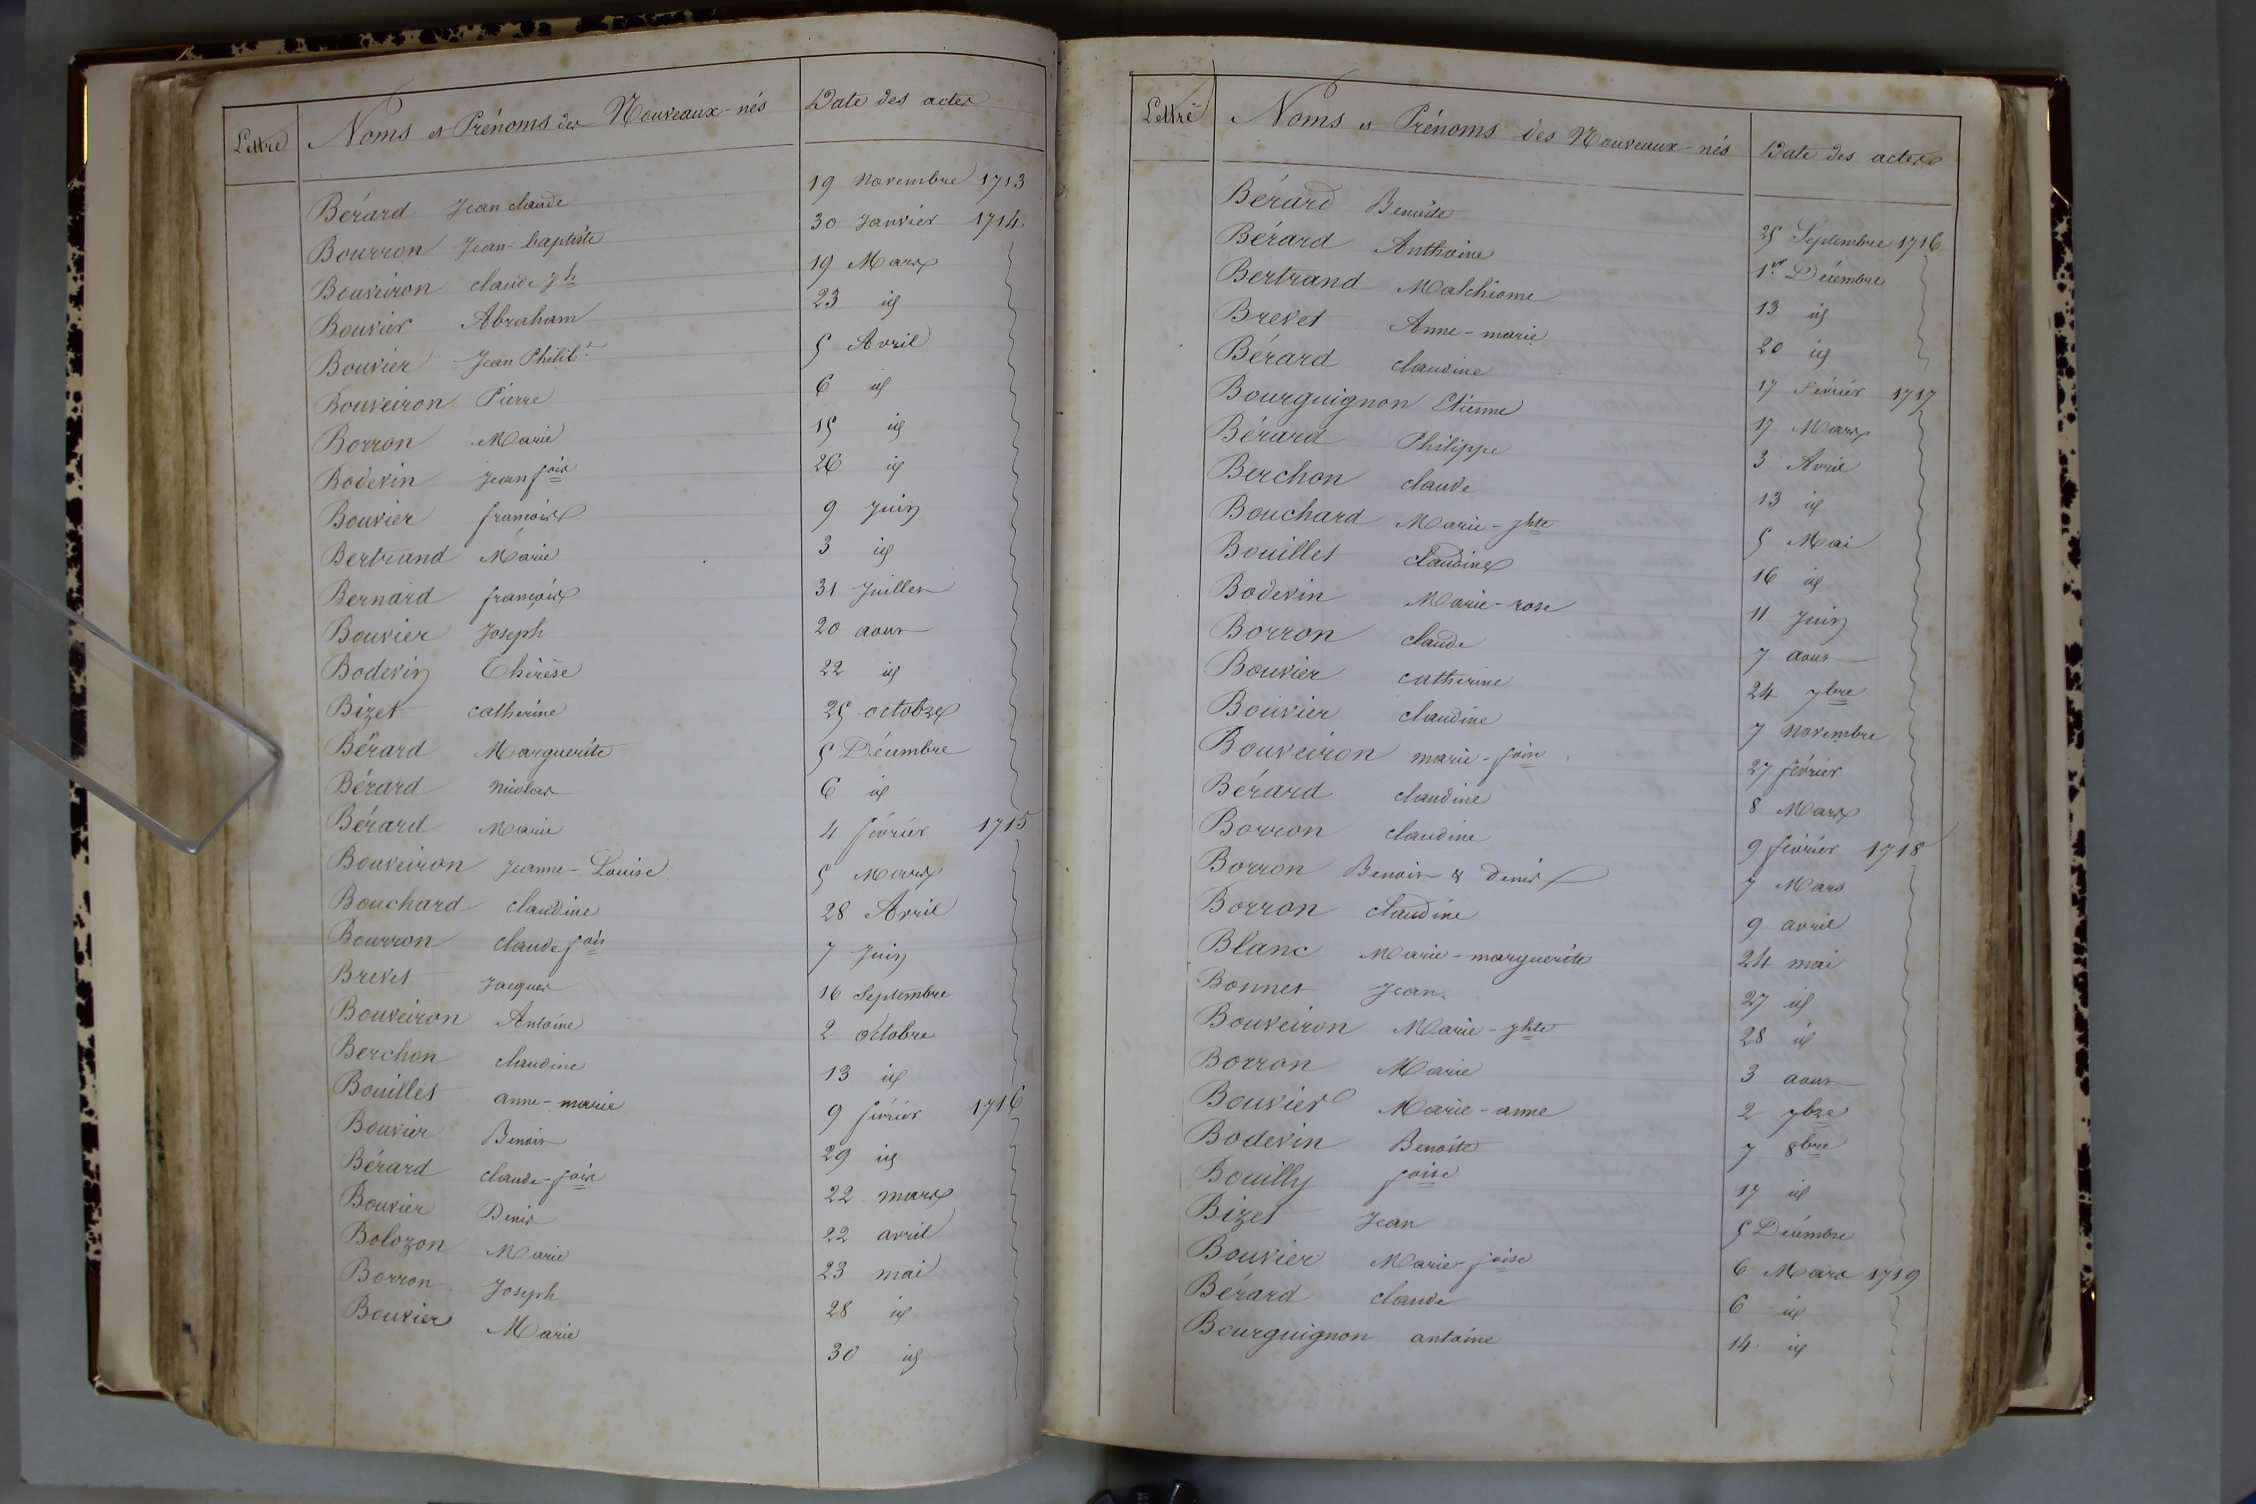 Lettre Noms et Prénoms des Nouveaux-nés Date des actes
Bérard Jean claude 19 Novembre 1713
Bourron Jean-baptiste 30 Janvier 1714
Bouveiron claude jh 19 Mars
Bouvier Abraham 23 id
Bouvier Jean Philibt 5 Avril
Bouveiron Pierre 6 id
Borron Marie 15 id
Bodevin Jean fois 26 id
Bouvier françois 9 Juin
Bertrand Marie 3 id
Bernard françois 31 Juillet
Bouvier Joseph 20 aout
Bodevin Thérèse 22 id
Bizet catherine 25 octobre
Bérard Marguerite 5 Décembre
Bérard Nicolas 6 id
Bérard Marie 4 février 1715
Bouveiron Jeanne-Louise 5 Mars
Bouchard claudine 28 Avril
Bourron claude fois 7 Juin
Brevet Jacques 16 Septembre
Bouveiron Antoine 2 octobre
Berchon claudine 13 id
Bouillet anne-marie 9 février 1716
Bouvier Benoit 29 id
Bérard claude-fois 22 mars
Bouvier Denis 22 avril
Bolozon Marie 23 mai
Borron Joseph 28 id
Bouvier Marie 30 id
Lettre Noms et Prénoms des Nouveaux-nés Date des actes
Bérard Benoite 25 Septembre 1716
Bérard Anthoine 1er Décembre
Bertrand Malchiome 13 id
Brevet Anne-marie 20 id
Bérard claudine 17 Février 1717
Bourguignon Etienne 17 Mars
Bérard Philippe 3 Avril
Berchon claude 13 id
Bouchard Marie-jhte 5 Mai
Bouillet claudine 16 id
Bodevin Marie-rose 11 Juin
Borron claude 7 aout
Bouvier catherine 24 7bre
Bouvier claudine 7 Novembre
Bouveiron marie-foise 27 février
Bérard claudine 8 Mars
Borron claudine 9 février 1718
Borron Benoit & Denis 7 Mars
Borron claudine 9 avril
Blanc Marie-marguerite 24 mai
Bonnet Jean 27 id
Bouveiron Marie-jhte 28 id
Borron Marie 3 aout
Bouvier Marie-anne 2 7bre
Bodevin Benoite 7 8bre
Bouilly foise 17 id
Bizet Jean 5 Décembre
Bouvier Marie foise 6 Mars 1719
Bérard claude 6 id
Bourguignon antoine 14 id